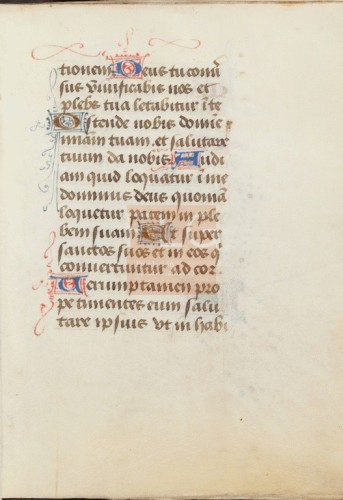 tionem Deus tu conu̅
sus viuificabis nos et
plebs tua letabitur i̅ te
Ostende nobis domine
m̅iam tuam et salutare
tuum da nobis Audi
am quid loquatur i̅ me
dominus deus quonia̅
loquetur pacem in ple
bem suam Et super
sanctos suos et in eos q̅
conuertuntur ad cor
Verumptamen pro
pe timentes eum salu
tare ipsius vt in habi